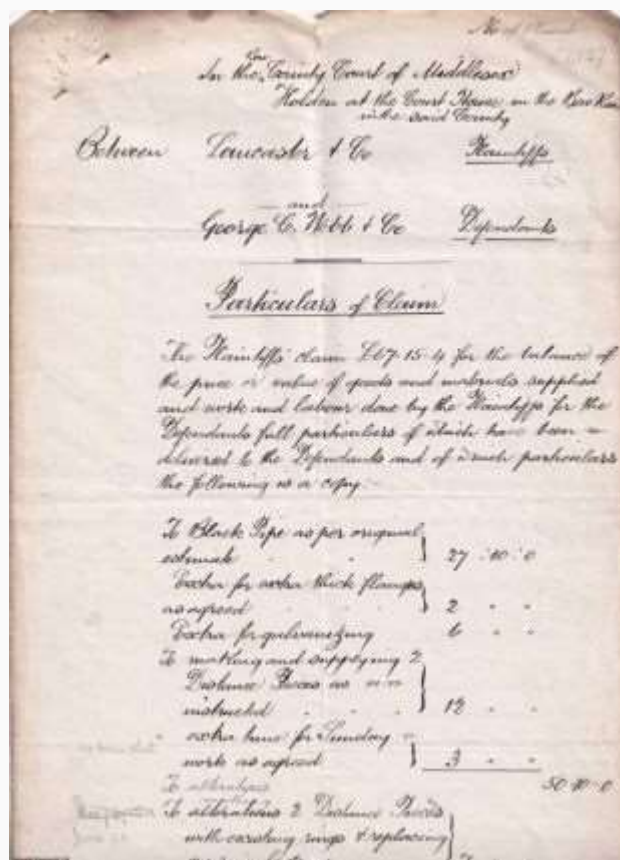 No of Plaint
In the Bow County Court of Middlesex
Holden at the Court House in the Bow
in the said County
Between Lancaster & Co Plaintiffs
and
George C. Webb & Co Defendants
Particulars of Claim
The Plaintiffs' claim £67-15-4 for the balance of
the price or value of goods and materials supplied
and work and labour done by the Plaintiffs for the
Defendants full particulars of which have been
delivered to the Defendants and of which particulars
the following is a copy
To Black Pipe as per original
estimate 27 : 10 : 0
Extra for extra thick flanges
as agreed 2 " "
Extra for galvanizing 6 " "
To making and supplying 2
Distance Pieces as
instructed 12 " "
extra time for Sunday
work as agreed 3 " "
50 10 0
To alterations
To alterations 2 Distance Pieces
with rings & replacing